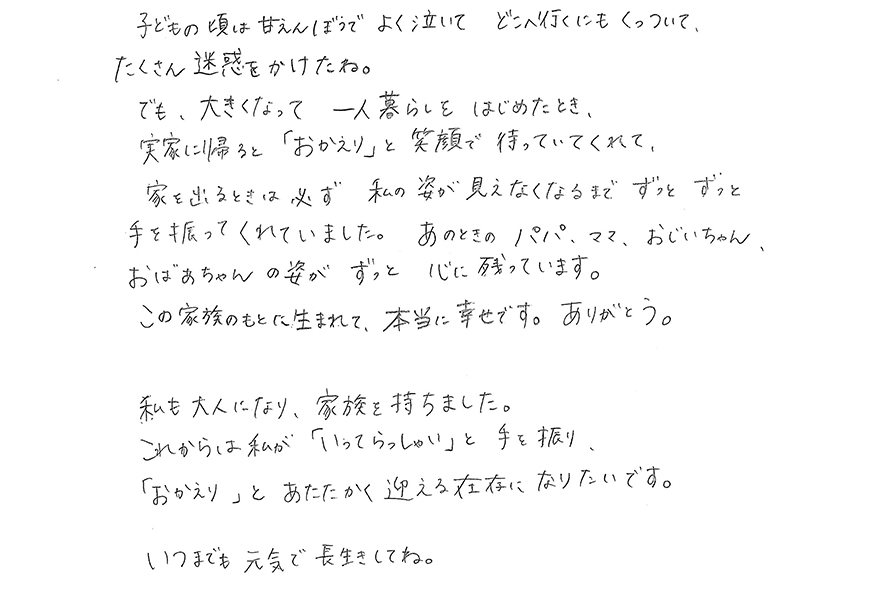 子どもの頃は甘えんぼうで よく泣いて どこへ行くにも くっついて、
たくさん 迷惑をかけたね。
でも、大きくなって 一人暮らしを はじめたとき、
実家に帰ると「おかえり」と 笑顔で 待っていてくれて、
家を出るときは 必ず 私の 姿が 見えなくなるまで ずっと ずっと
手を振ってくれていました。 あのときの パパ、ママ、おじいちゃん、
おばあちゃん の姿が ずっと 心に 残っています。
この家族のもとに生まれて、本当に 幸せです。ありがとう。
私も大人になり、家族を持ちました。
これからは私が「いってらっしゃい」と 手を振り、
「おかえり」と あたたかく 迎える存在に なりたいです。
いつまでも 元気で 長生きしてね。